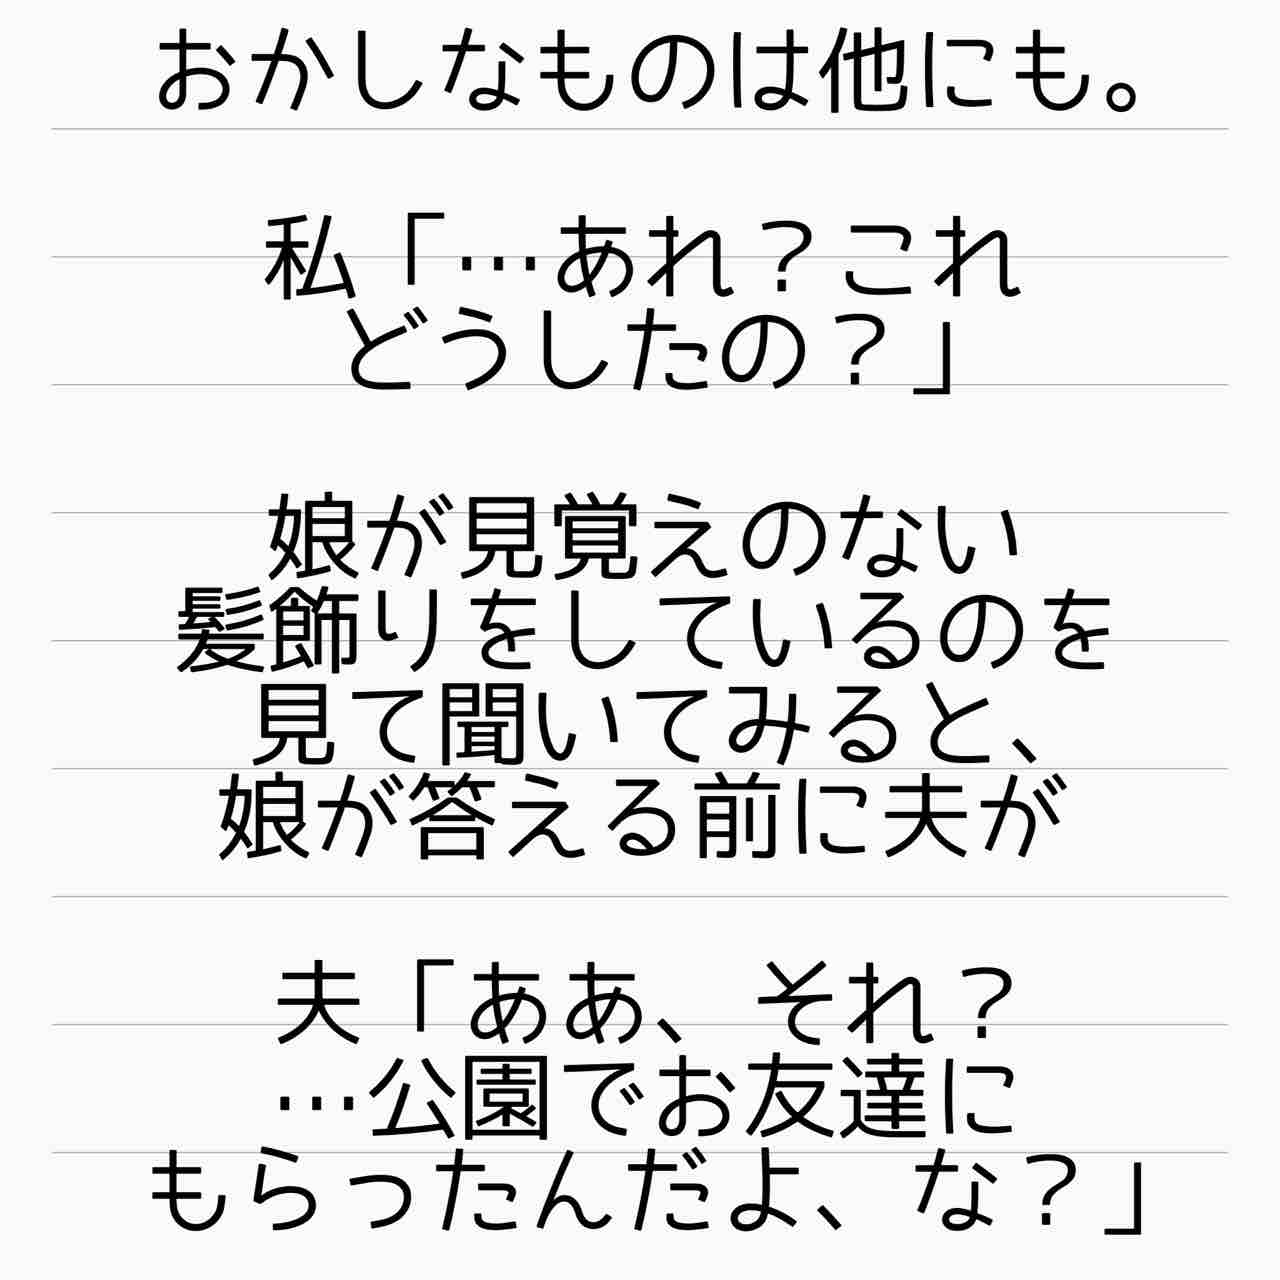 おかしなものは他にも。
私「…あれ？これ
どうしたの？」
娘が見覚えのない
髪飾りをしているのを
見て聞いてみると、
娘が答える前に夫が
夫「ああ、それ？
…公園でお友達に
もらったんだよ、な？」